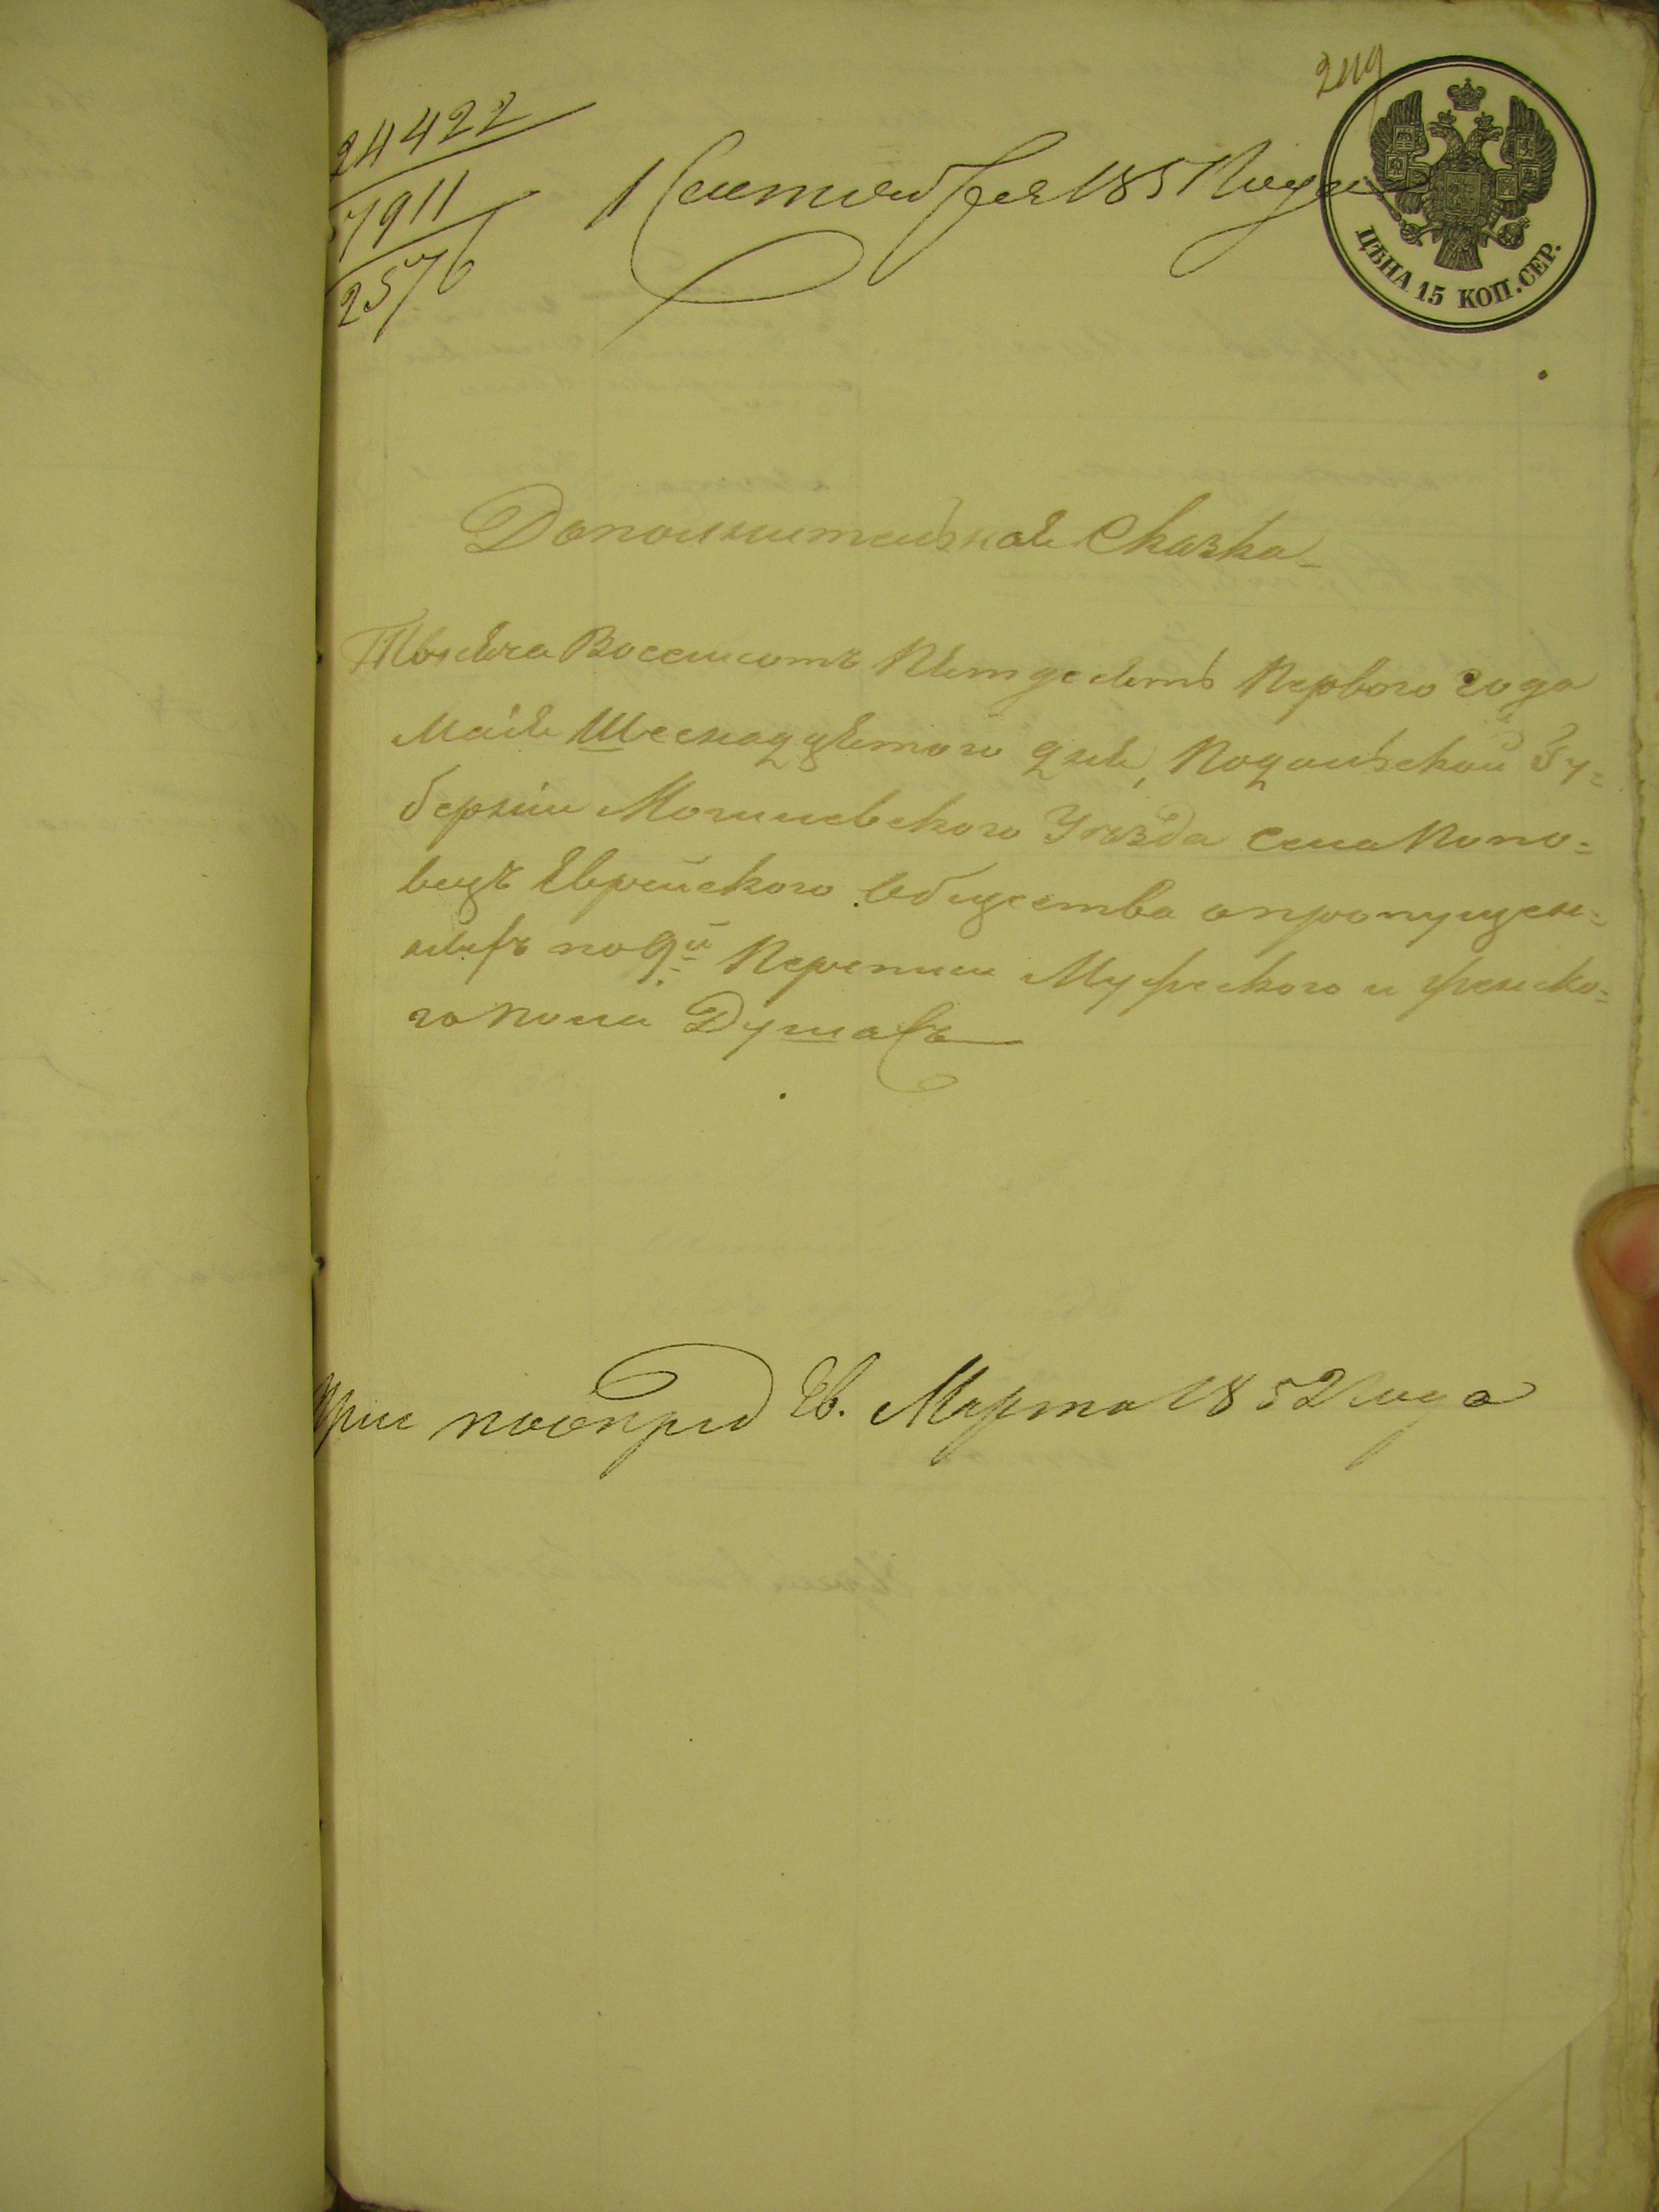 249
24422
7911
2576
1 Сентября 1851 Года
ЦѢНА 15 КОП. СЕР.
Дополнительная Сказка
Тысяча Восемсотъ Пятдесятъ Перваго года
Маія Шеснадцятого дня, Подольской Гу=
берніи Могилевского Уѣзда Села Попо=
вецъ Еврейского Общества о пропущен=
ныхъ по 9й Переписи Мужеского и женско=
го пола Душахъ
Марта 1852 года